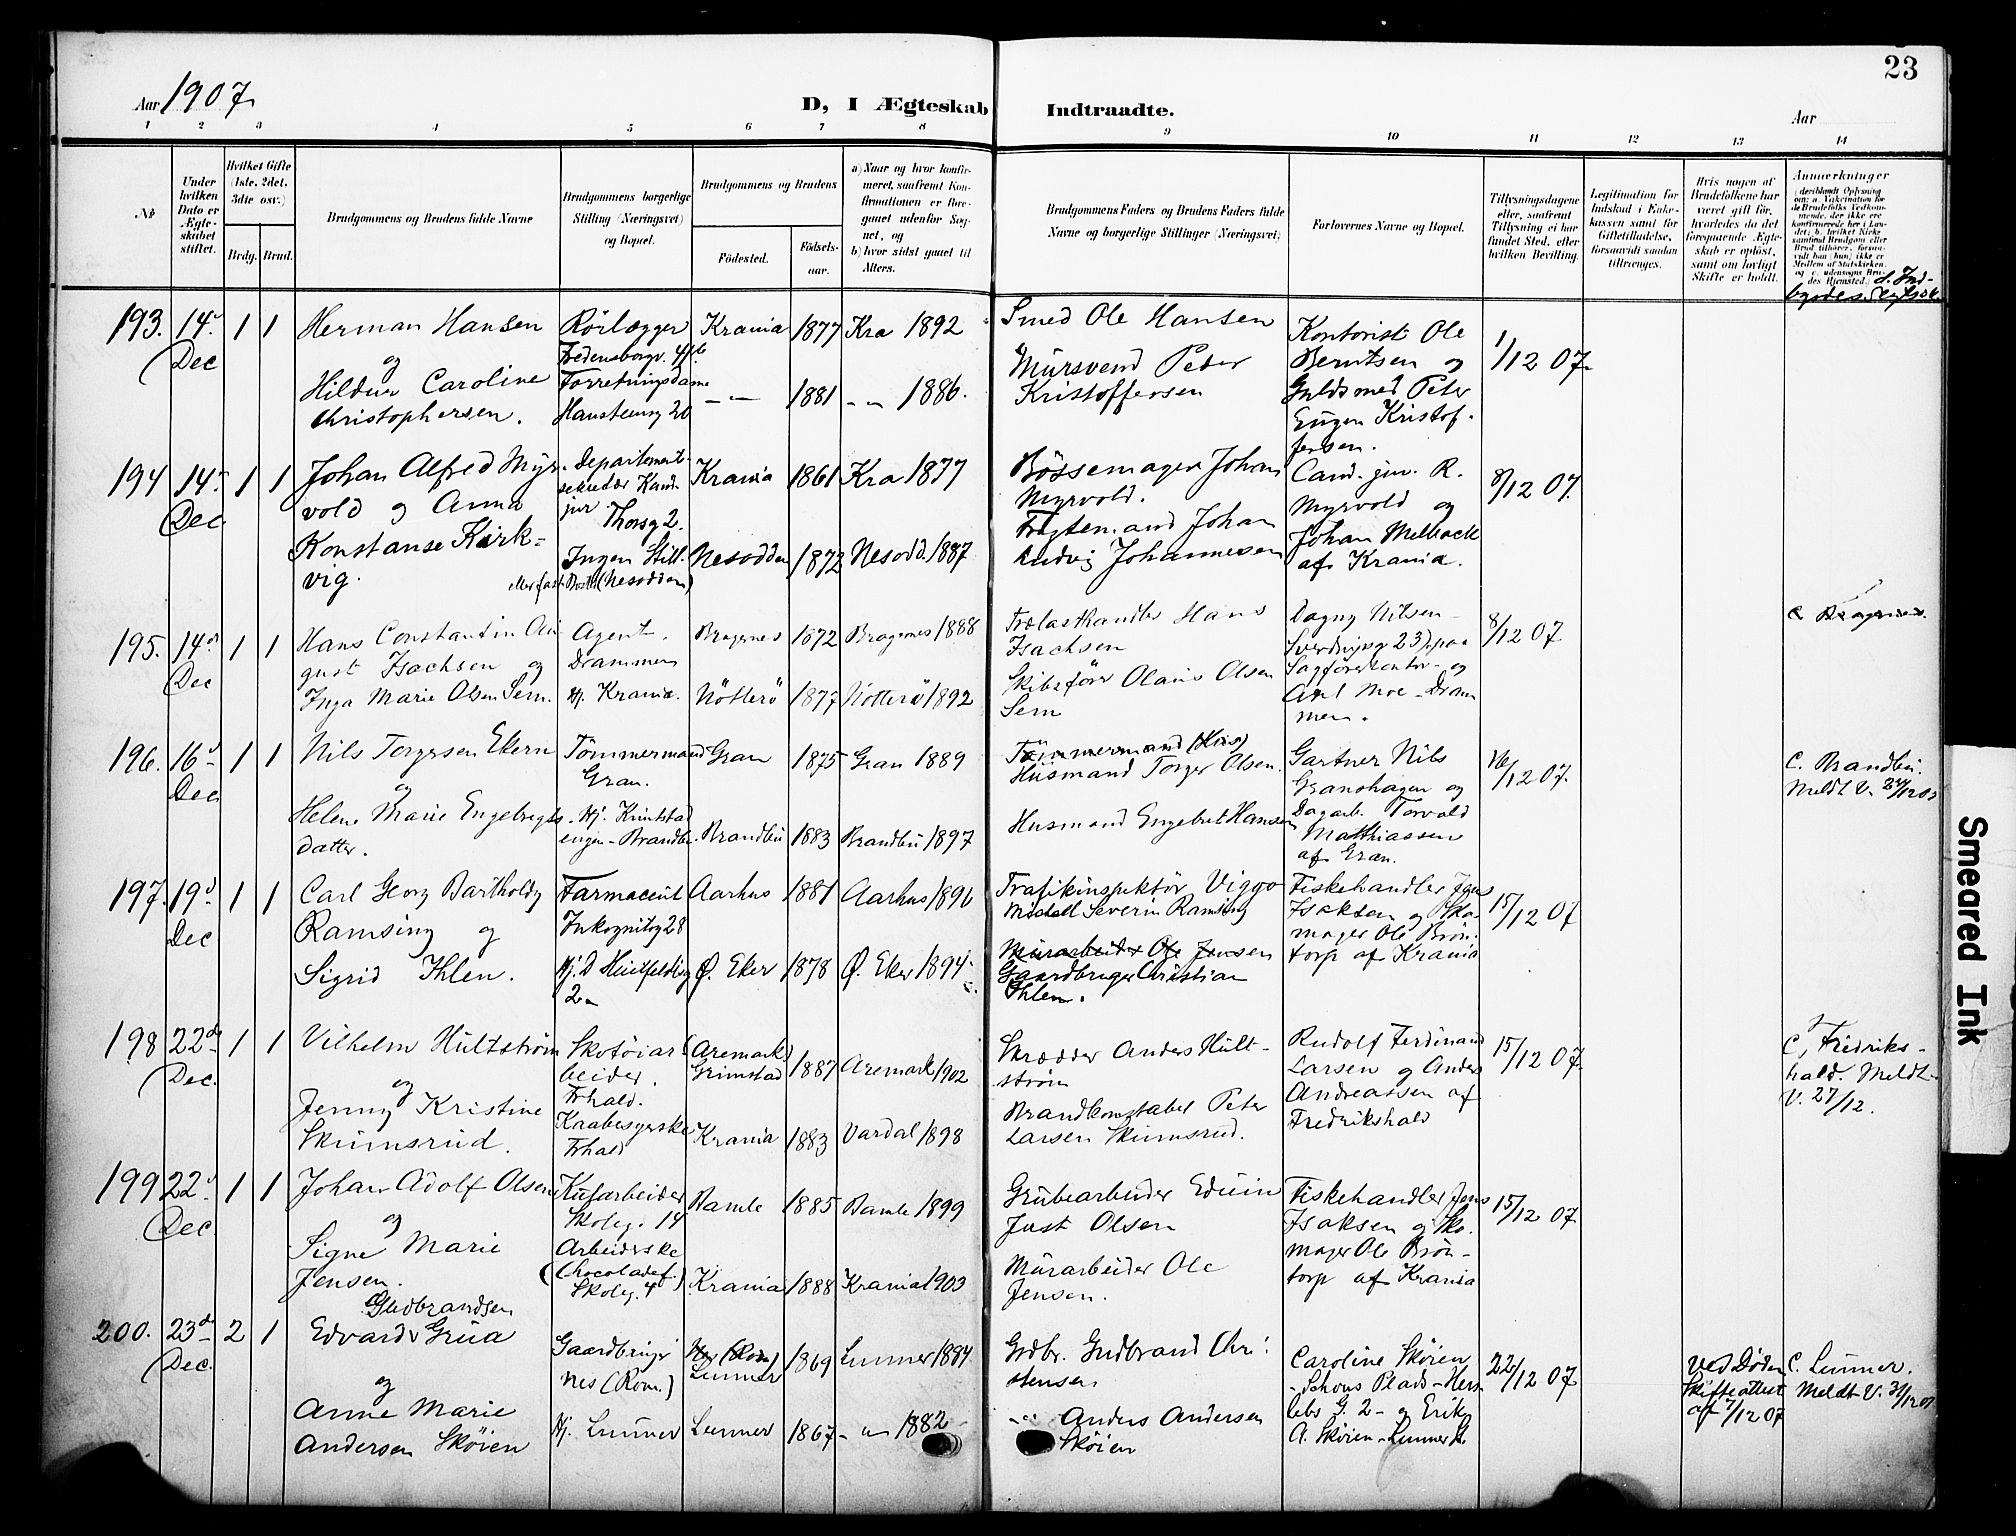 23
Aar 1907.
D, I Ægteskab Indtraadte.
Aar
1 2 3 4 5 6 7 8 9 10 11 12 13 14
No
Under hvilken Dato er Ægteskabet stiftet.
Hvilket Gifte (1ste, 2det, 3die osv.)
Brdg. Brud.
Brudgommens og Brudens fulde Navne
Brudgommens borgerlige Stilling (Næringsvei) og Bopæl.
Brudgommens og Brudens
Fødested.
Fødselsaar.
a) Naar og hvor konfirmeret, saafremt Konfirmationen er foregaaet udenfor Sognet, og
b) hvor sidst gaaet til Alters.
Brudgommens Faders og Brudens Faders fulde Navne og borgerlige Stillinger (Næringsvei)
Forlovernes Navne og Bopæl.
Tillysningsdagene eller, saafremt Tillysning ei har fundet Sted, efter hvilken Bevilling.
Legitimation for Indskud i Enkekassen samt for Giftetilladelse, forsaavidt saadan tiltrænges.
Hvis nogen af Brudefolkene har været gift før, hvorledes da det foregaaende Ægteskab er opløst, samt om lovligt Skifte er holdt.
Anmerkninger
193. 14d Dec 1 1
Herman Hansen
og
Hildur Caroline
Christophersen.
Rörlægger
Fredensborgv. 41b
Forretningsdame
Hausteensg 20
Krania 1877 Kra 1892
— — 1881 — — 1886.
Smed Ole Hansen
Mursvend Peder
Kristoffersen
Kontorist Ole
Berntsen og
Guldsmed Peter
Eugen Kristof-
fersen.
1/12 07.
194 14d Dec. 1 1
Johan Alfred Myr-
vold og Anna
Konstanse Kirk-
vig.
Departement-
sekretær Kand.
jur.
Thorsg 2.
Ingen Still.
(Nesodden)
Krania 1861 Kra 1877
Nesodden 1872 Nesodd. 1887
Bössemager Johan
Myrvold.
Fragtemand Johan
Ludvig Johannesen
Cand. jur. R.
Myrvold og
Johan Melback
af Krania.
8/12 07.
195. 14d Dec 1 1
Hans Constantin Au-
gust Isachsen og
Inga Marie Olsen Sem.
Agent.
Drammen
Hj. Krania.
Bragernes 1872 Bragernes 1888
Nötterö 1877 Nötterö 1892
Trælasthandler Hans
Isachsen
Skibsförer Olaus Olsen
Sem
Dagny Nilsen-
Sverdrupsg 23 ppaa
Sagförerkontor- og
Axel Moe - Dram
men.
8/12 07.
C Bragernes.
196. 16d Dec 1 1
Nils Torgersen Ekern
og
Helene Marie Engebregts
datter.
Tömmermand
Gran.
Hj.
Brandbu.
Gran 1875 Gran 1889
Brandbu 1883 Brandbu 1897
Tömmermand (Hus)
Husmand Torger Olsen.
Husmand Engebret Hansen
Gartner Nils
Granshagen og
Dagarb. Torvald
Matthiassen
af Gran.
16/12 07.
C. Brandbu.
Meldt V.
197. 19d Dec 1 1
Carl Georg Bartholdy
Ramsing og
Sigrid Ihlen.
Farmaceut
Inkognitog 28
Hj. D Huitfeldtsg
2-
Aarhus 1881 Aarhus 1896
Ø. Eker 1878 Ø. Eker 1894
Trafikinspektör Viggo
Michell Severin Ramsing
Murarbeider Ole Jensen
Gaardbruger Christian
Ihlen.
Fiskehandler Jens
Isaksen og Sko-
mager Ole Brön-
torp af Krania
15/12 07
198 22de Dec. 1 1
Vilhelm Hultström
og
Jenny Kristine
Skumsrud.
Skotöiar-
beider.
Frhald.
Kaabesyerske
Frhald
(Aremark)
Grimstad 1887 Aremark 1902
Krania 1883 Vardal 1898
Skrædder Anders Hult-
ström
Brandkonstabel Peter
Larsen Skumsrud.
Rudolf Ferdinand
Larsen og Anders
Andreassen af
Fredrikshald
15/12 07.
C, Fredriks-
hald. Meldt
V. 27/12.
199 22d Dec. 1 1
Johan Adolf Olsen
og
Signe Marie
Jensen.
Kulfarbeider
Skoleg. 14
Arbeiderske
(Chocoladef.)
Skoleg. 4
Bamle 1885 Bamle 1899
Krania 1888 Krania 1903
Grubearbeider Edvin
Just Olsen
Murarbeider Ole
Jensen.
Fiskehandler Jens
Isaksen og Sko-
mager Ole Brön-
torp af Krania
15/12 07
200. 23de Dec. 2 1
Gudbrandsen
Edvard Grua
og
Anne Marie
Andersen Sköien
Gaardbruger
Nes (Rom.)
Hj. Lunner
Lunner 1869 Lunner 1884
Lunner 1867 — — 1882
Grdbr. Gudbrand Chri-
stensen
— Anders Andersen
Sköien
Caroline Sköien
- Schous Plads - Hers-
lebs G. 2 - og Erik
A. Sköien - Lunner
22/12 07
Ved Döden
Skifteattest
af 7/12 07
C. Lunner.
Meldt V. 31/12 07
Smeared Ink